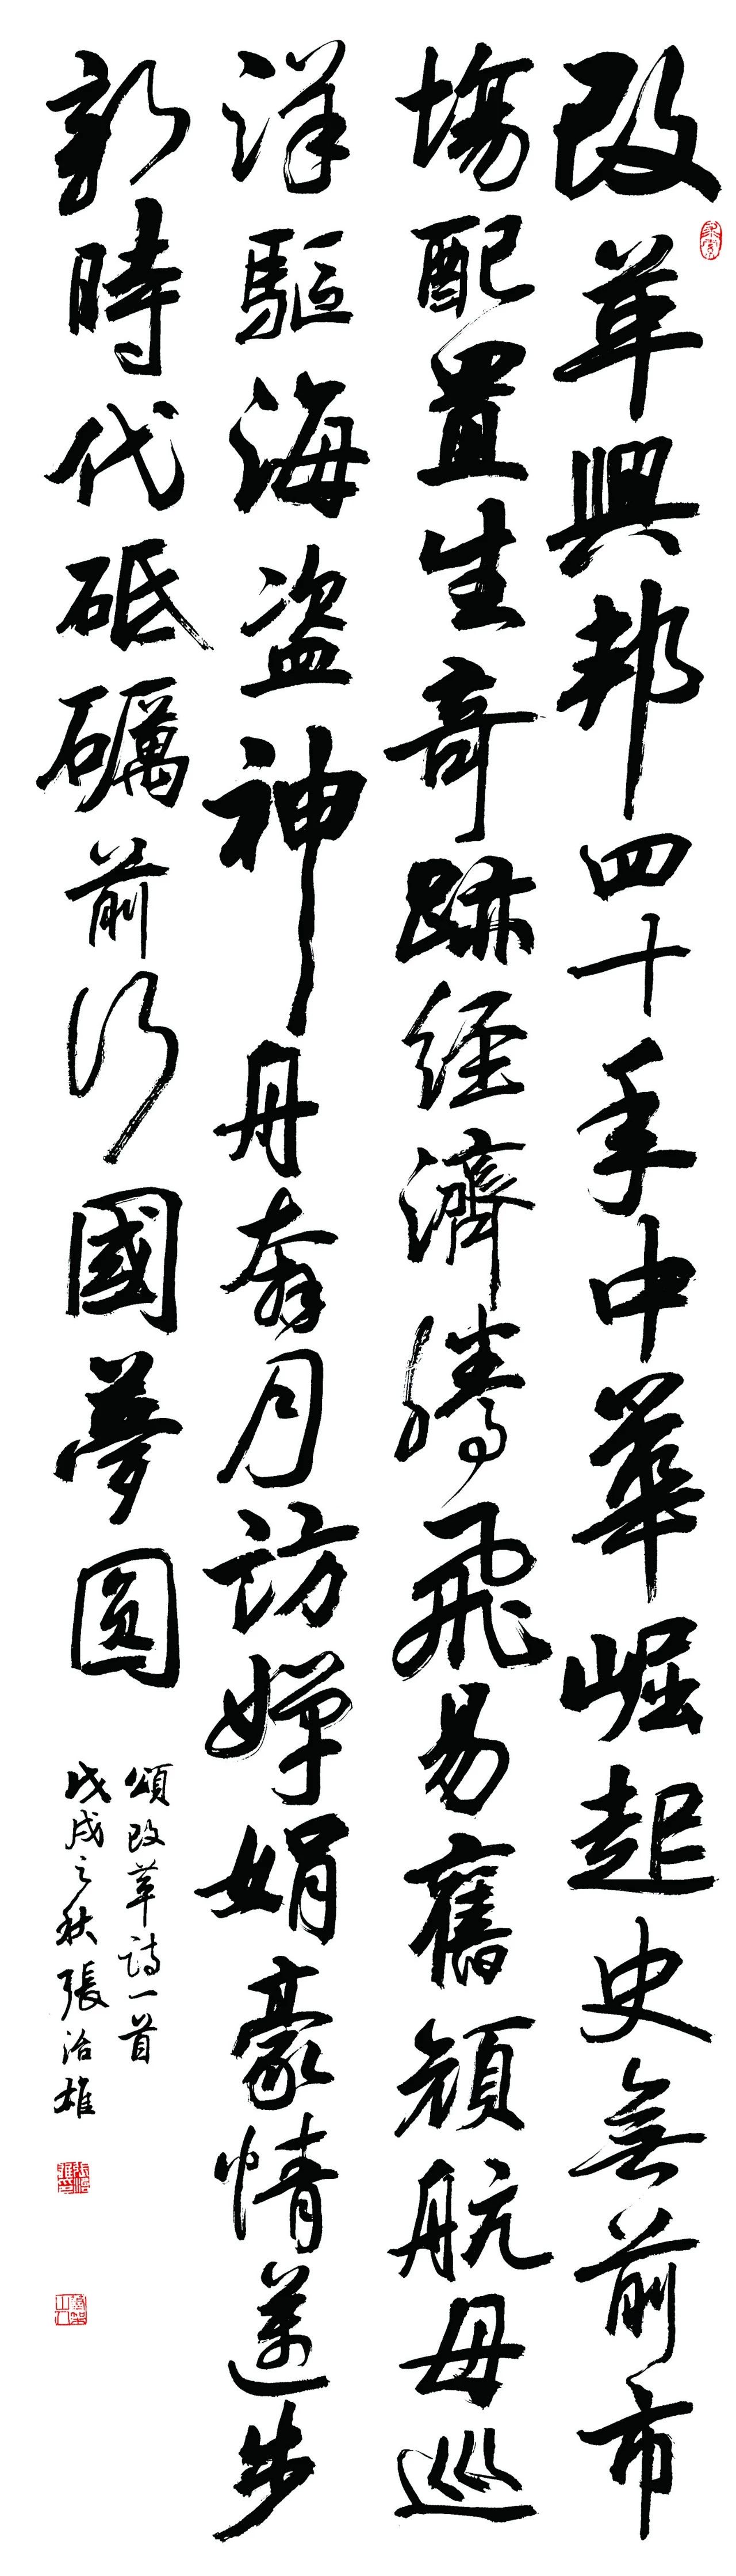 改革興邦四十年中華崛起史無前市
場配置生奇跡經濟騰飛易舊顔航母巡
洋驅海盗神舟奔月訪嬋娟豪情邁步
新時代砥礪前行國夢圓
頌改革詩一首
戊戌之秋張治雄